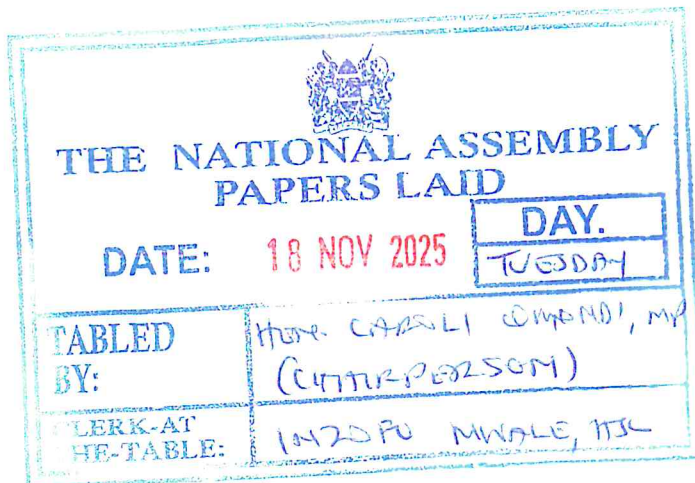 THE NATIONAL ASSEMBLY
PAPERS LAID
DATE: 18 NOV 2025
DAY.
TUESDAY
TABLED BY:
Hon. CAROLI OMONDI, MP
(CHAIRPERSON)
CLERK-AT
THE-TABLE:
INZOFU MWALE, HSC